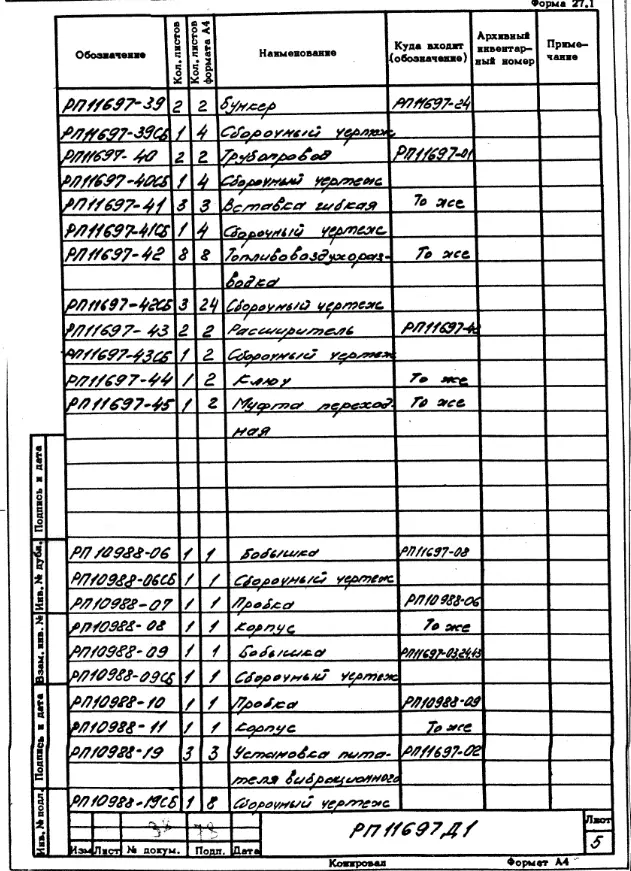 Форма 27.1
Обозначение Кол. листов Кол. листов формата А4 Наименование Куда входит (обозначение) Архивный инвентар-ный номер Приме-чание
РП11697-39 2 2 Бункер РП11697-24
РП11697-39СБ 1 4 Сборочный чертеж
РП11697-40 2 2 Трубопровод РП11697-01
РП11697-40СБ 1 4 Сборочный чертеж
РП11697-41 3 3 Вставка гибкая То же
РП11697-41СБ 1 4 Сборочный чертеж
РП11697-42 8 8 Топливовоздухораз- То же
водка
РП11697-42СБ 3 24 Сборочный чертеж
РП11697-43 2 2 Расширитель РП11697-42
РП11697-43СБ 1 2 Сборочный чертеж
РП11697-44 1 2 Ключ То же
РП11697-45 1 2 Муфта переход- То же
ная
РП10988-06 1 1 Бобышка РП11697-08
РП10988-06СБ 1 1 Сборочный чертеж
РП10988-07 1 1 Пробка РП10988-06
РП10988-08 1 1 Корпус То же
РП10988-09 1 1 Бобышка РП11697-03,24,43
РП10988-09СБ 1 1 Сборочный чертеж
РП10988-10 1 1 Пробка РП10988-09
РП10988-11 1 1 Корпус То же
РП10988-19 3 3 Установка пита- РП11697-02
теля вибрационного
РП10988-19СБ 1 8 Сборочный чертеж
Инв. № подл. Подпись и дата Взам. инв. № Инв. № дубл. Подпись и дата
РП11697Д1
Лист
5
Изм Лист № докум. Подп. Дата
Копировал Формат А4